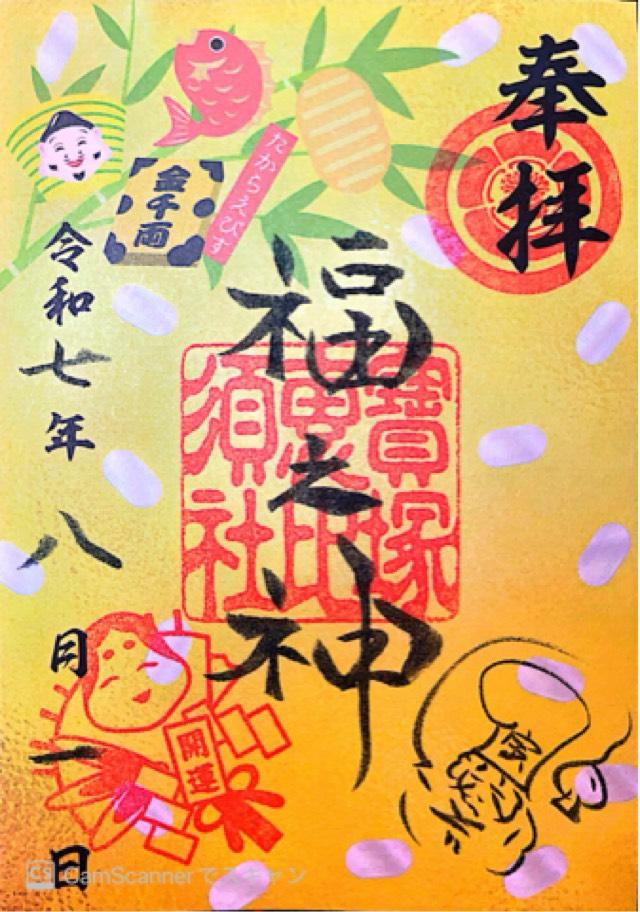 奉拝
たからえびす
金千両
福之神
寶塚
惠比
須社
令和七年 八月一日
開運
CS CamScannerでスキャン